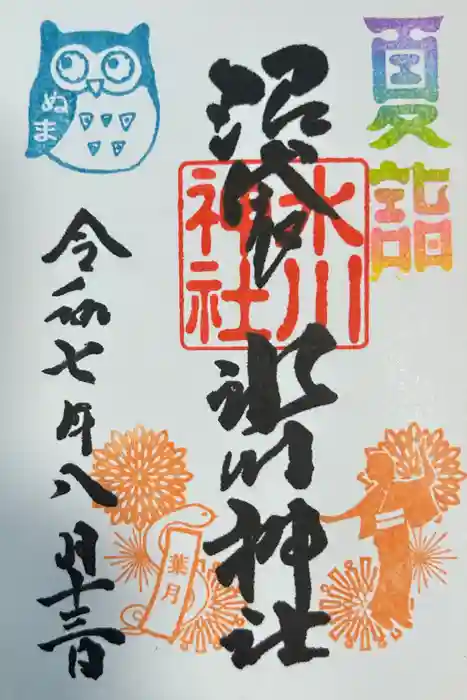 夏詣
沼袋
氷川神社
氷川
神社
ぬま
令和七年八月十三日
葉月